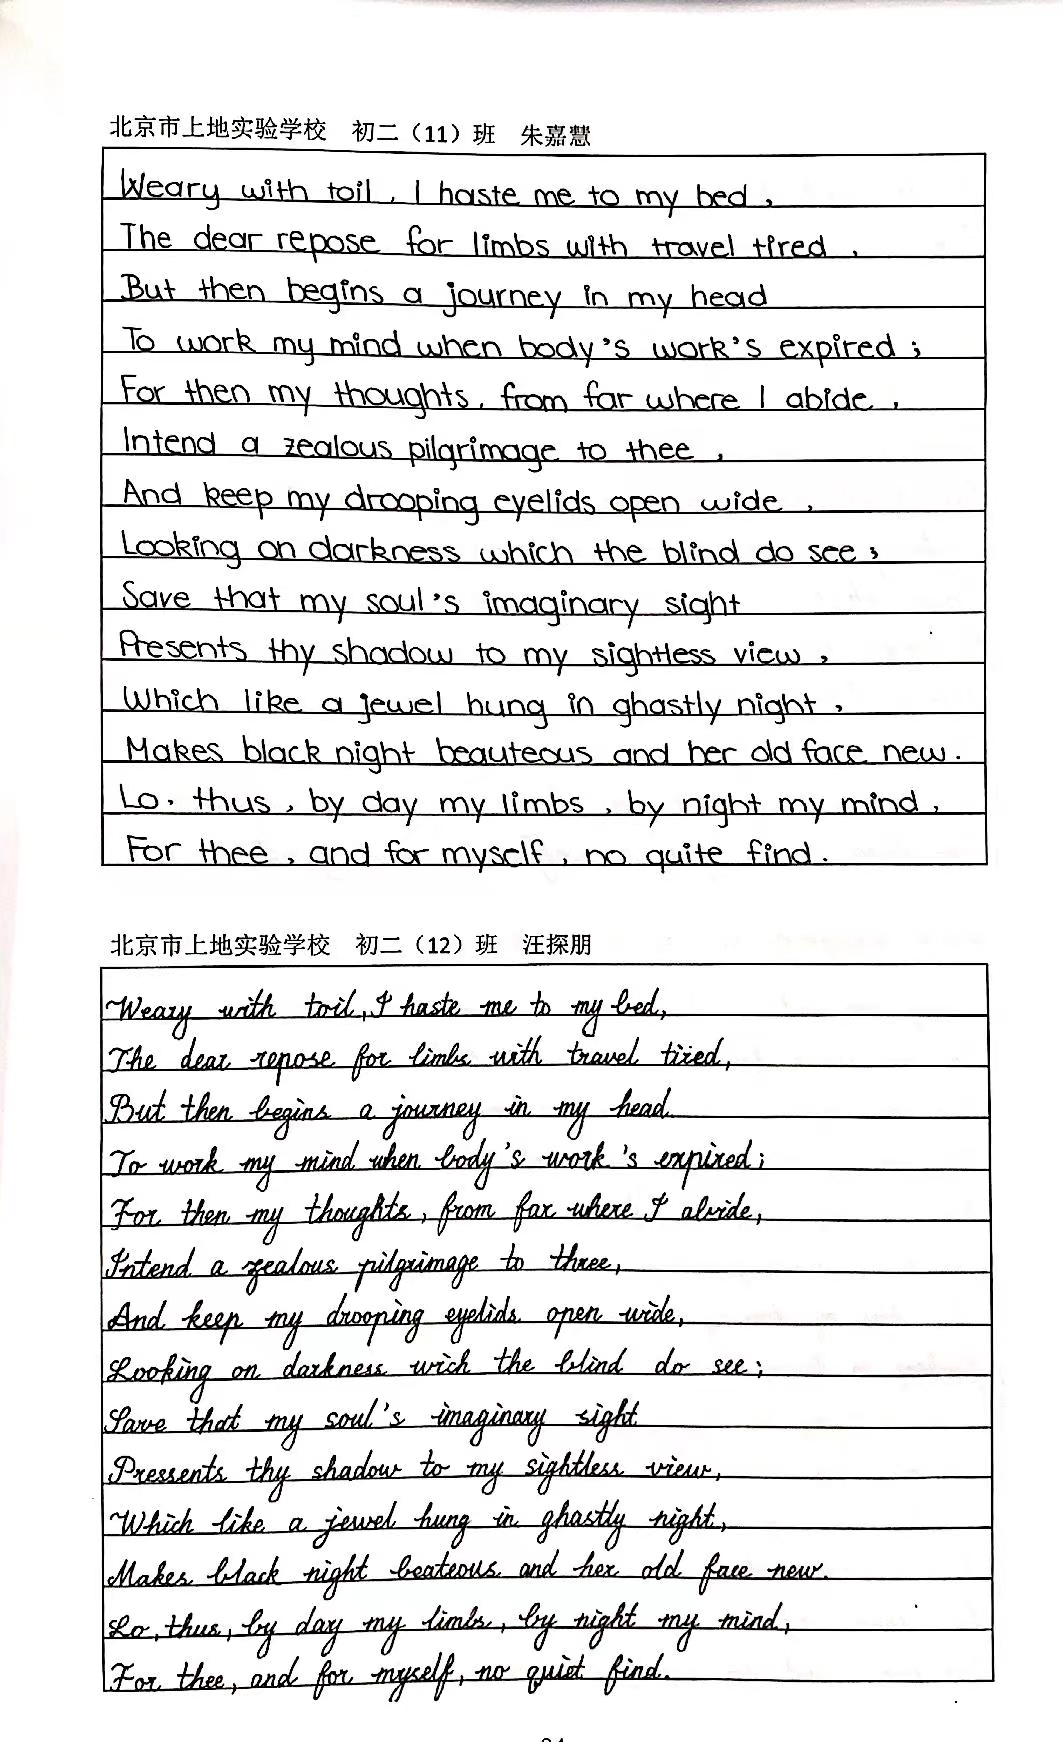 北京市上地实验学校 初二（11）班 朱嘉慧
Weary with toil, I haste me to my bed,
The dear repose for limbs with travel tired,
But then begins a journey in my head
To work my mind when body's work's expired;
For then my thoughts, from far where I abide,
Intend a zealous pilgrimage to thee,
And keep my drooping eyelids open wide,
Looking on darkness which the blind do see;
Save that my soul's imaginary sight
Presents thy shadow to my sightless view,
Which like a jewel hung in ghastly night,
Makes black night beauteous and her old face new.
Lo, thus, by day my limbs, by night my mind,
For thee, and for myself, no quite find.
北京市上地实验学校 初二（12）班 汪探朋
Weary with toil, I haste me to my bed,
The dear repose for limbs with travel tired,
But then begins a journey in my head
To work my mind when body's work's expired;
For then my thoughts, from far where I abide,
Intend a zealous pilgrimage to three,
And keep my drooping eyelids open wide,
Looking on darkness wich the blind do see;
Save that my soul's imaginary sight
Pressents thy shadow to my sightless view,
Which like a jewel hung in ghastly night,
Makes black night beateous and her old face new.
Lo, thus, by day my limbs, by night my mind,
For thee, and for myself, no quiet find.